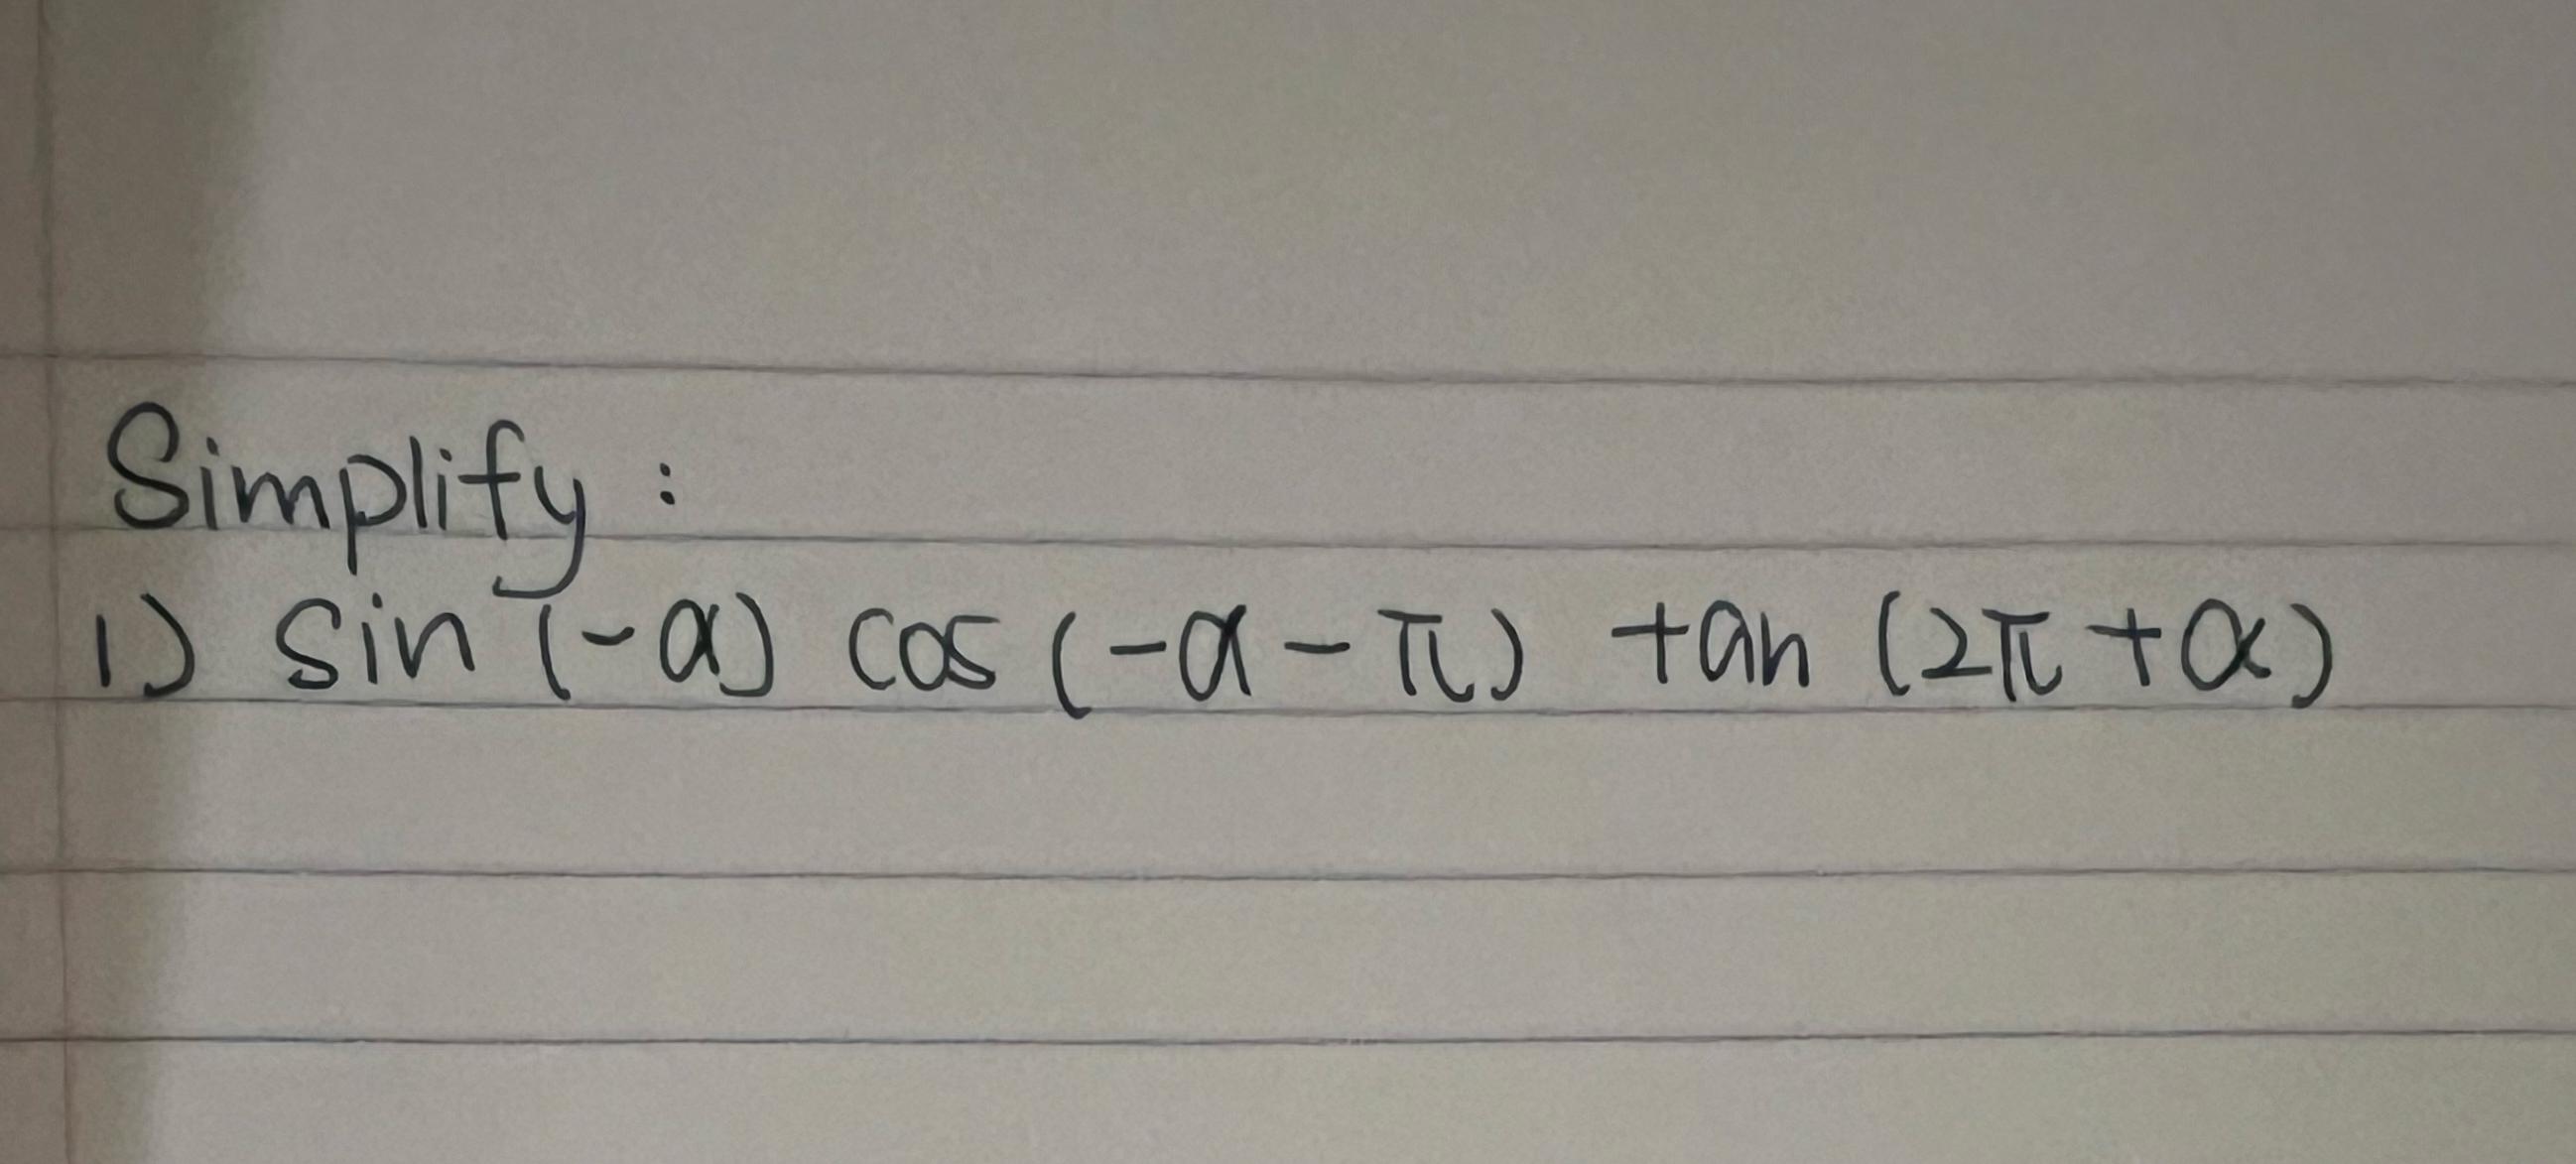 Simplify :
1) sin (-α) cos (-α - π) tan (2π + α)